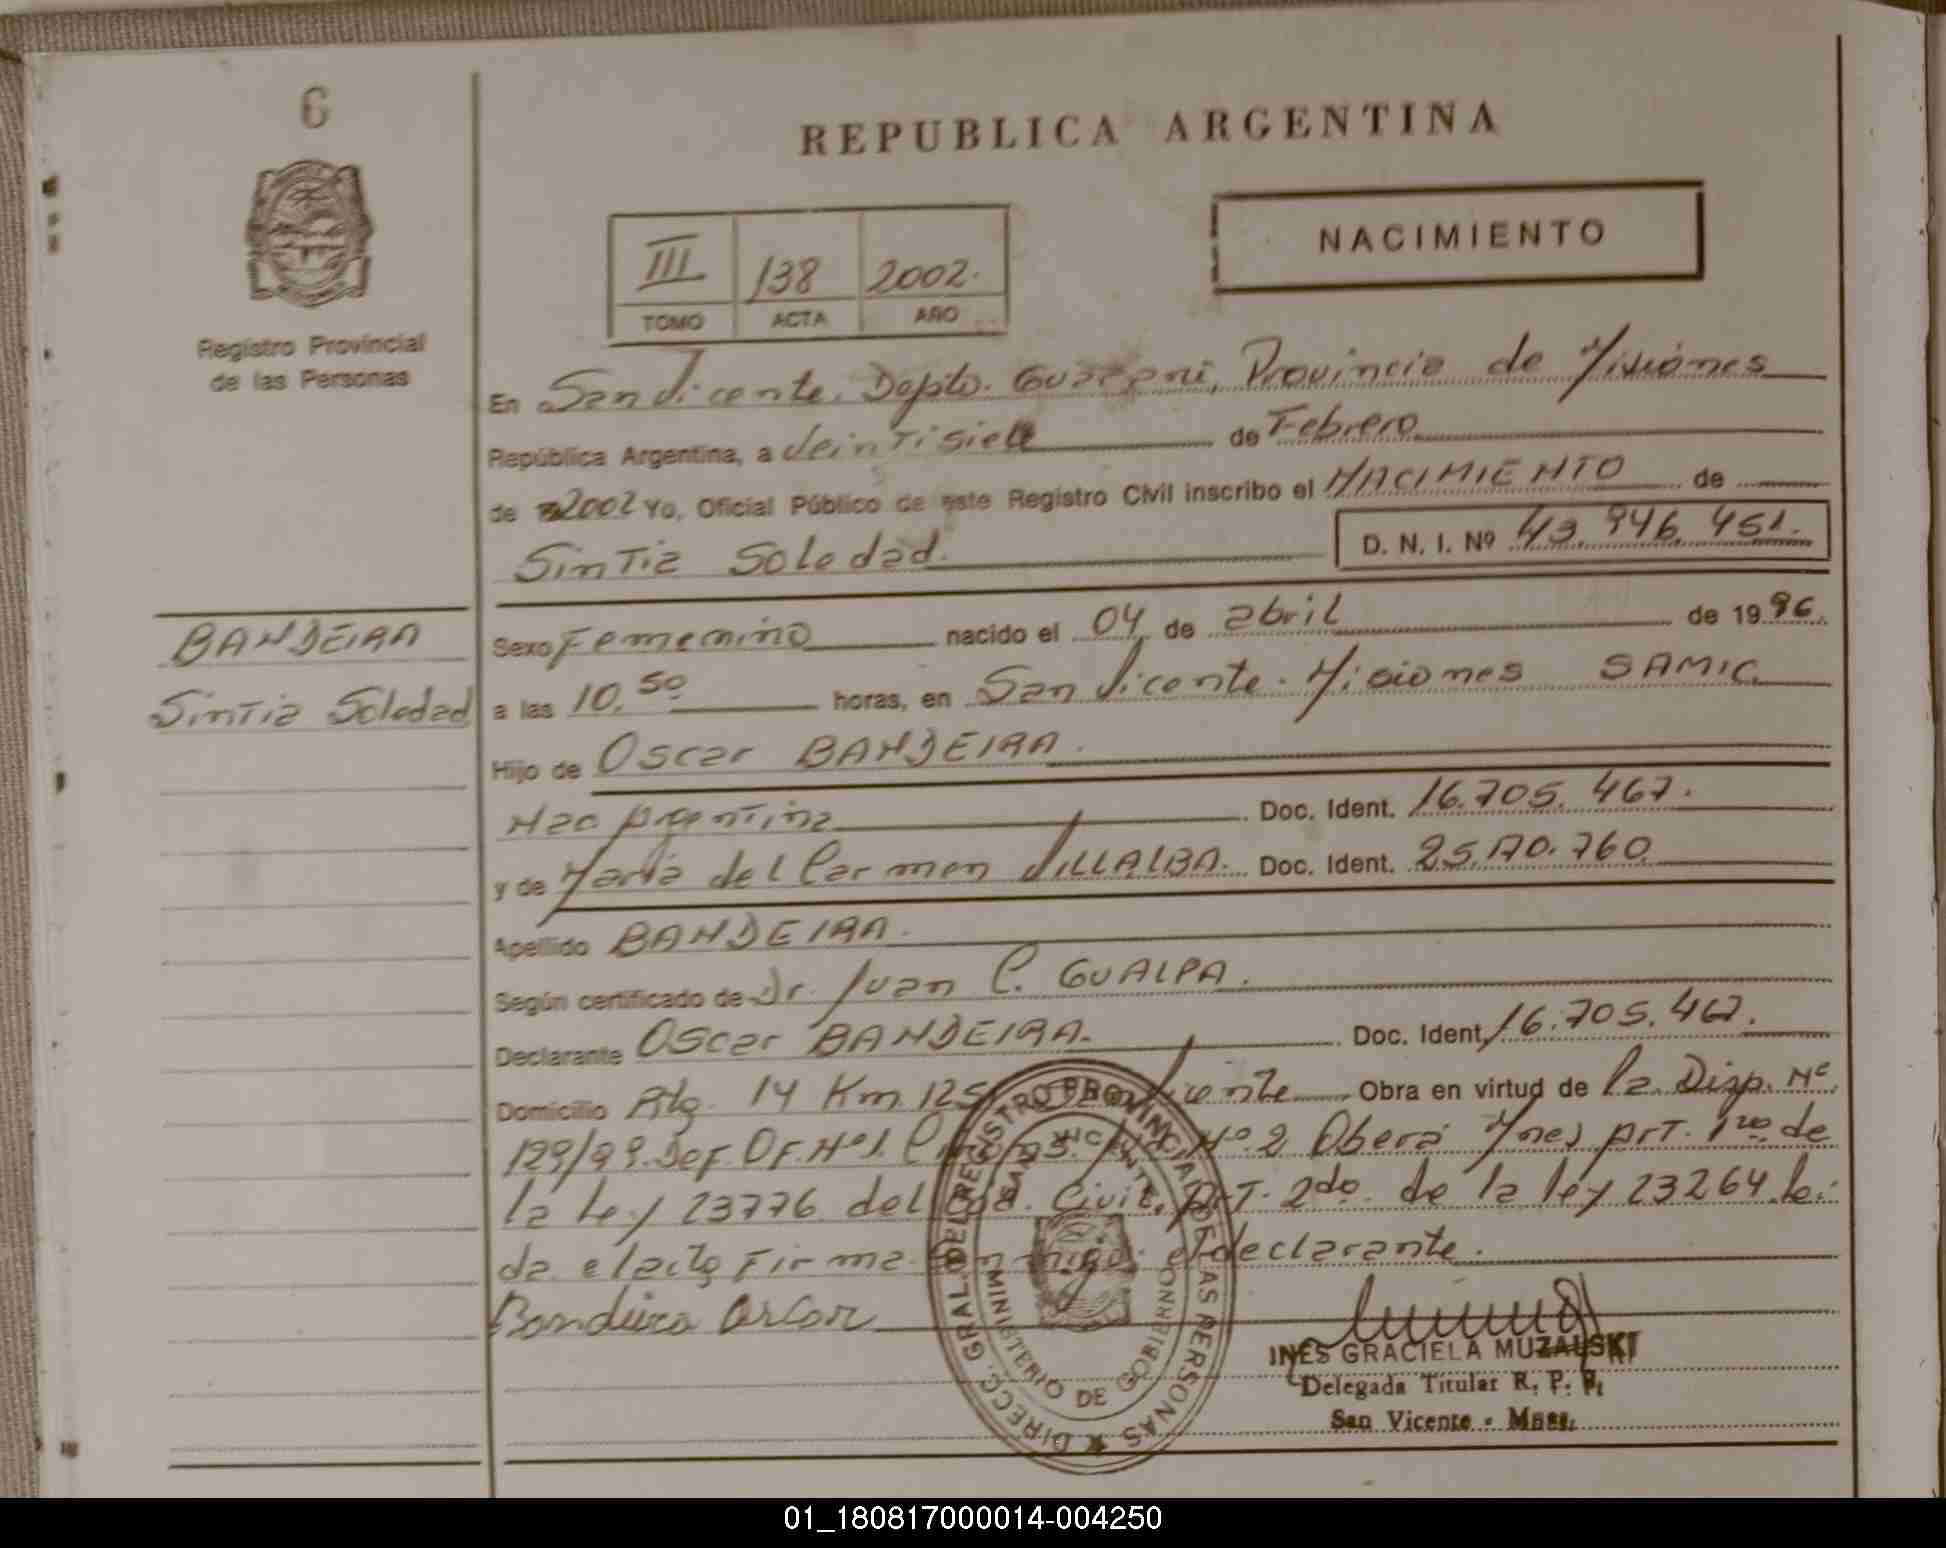 6
Registro Provincial
de las Personas
BANDEIRA
Sintia Soledad
REPUBLICA ARGENTINA
III 138 2002.
TOMO ACTA AÑO
NACIMIENTO
En San Vicente. Depto. Guarani, Provincia de Misiones
República Argentina, a veintisiete de Febrero
de 2002 Yo, Oficial Público de este Registro Civil inscribo el NACIMIENTO de
Sintia Soledad. D. N. I. Nº 43.946.451.
Sexo Femenino nacido el 04 de abril de 1996.
a las 10,50 horas, en San Vicente. Misiones SAMIC.
Hijo de Oscar BANDEIRA.
Nac Argentina Doc. Ident. 16.705.467.
y de María del Carmen VILLALBA. Doc. Ident. 25.170.760
Apellido BANDEIRA.
Según certificado de Dr. Juan C. GUALPA.
Declarante Oscar BANDEIRA. Doc. Ident. 16.705.467.
Domicilio Rta. 14 Km. 125 San Vicente Obra en virtud de la Disp. Nº
129/99. Def. Of. Nº 1. Nº 2 Obera Mnes Art. 1ro. de
la Ley 23776 del Cod. Civil. Art. 2do. de la ley 23264. lei
da el acta Firma conmigo el declarante.
Bandeira Oscar
DIRECC. GRAL. DEL REGISTRO PROVINCIAL DE LAS PERSONAS
SAN VICENTE
MINISTERIO DE GOBIERNO
INES GRACIELA MUZALSKI
Delegada Titular R. P. P.
San Vicente - Mnes.
01_180817000014-004250